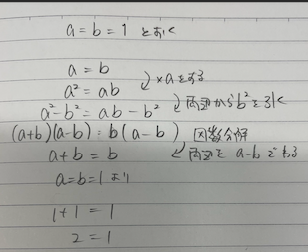 a = b = 1 とおく
a = b
a² = ab
×aをする
a² - b² = ab - b²
両辺からb²を引く
(a+b)(a-b) = b(a-b)
因数分解
a + b = b
両辺を a-b でわる
a = b = 1 より
1 + 1 = 1
2 = 1